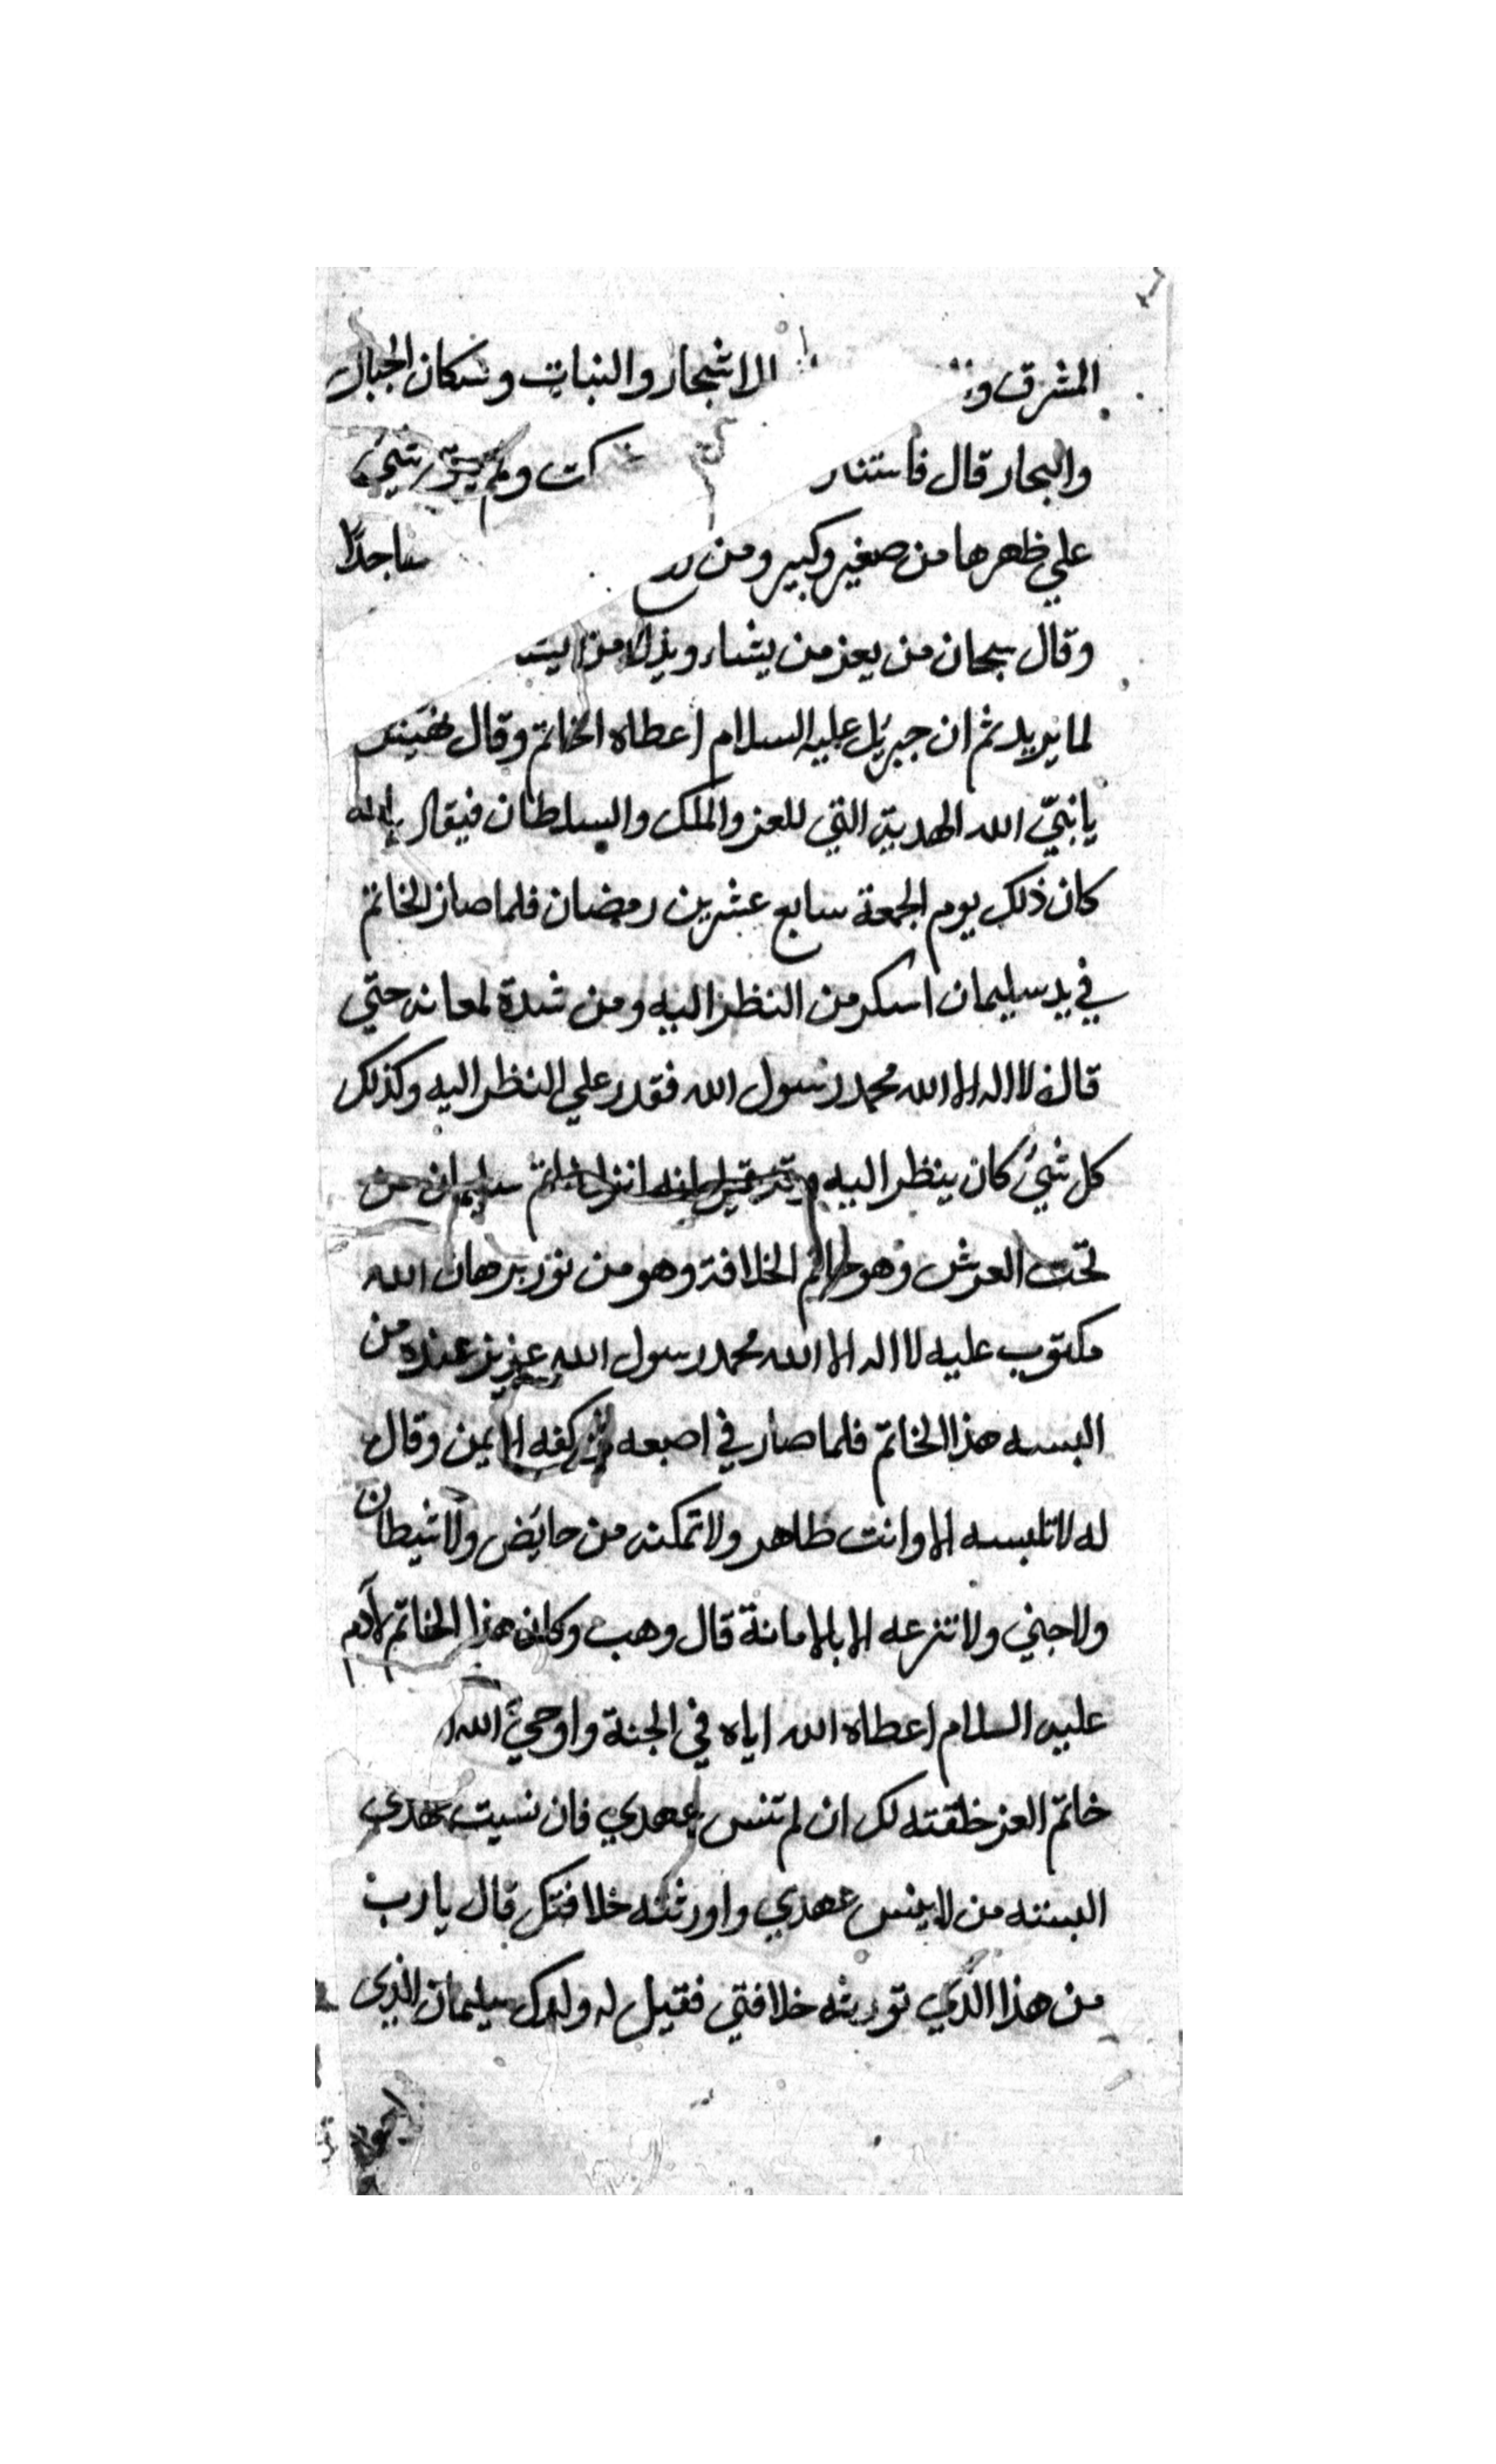 المشرق الاشجار والنبات وسكان الجبال
والبحار قال فاستنار ولم يبق شيئ
علي ظهرها من صغير وكبير ومن ساجدا
وقال سبحان من يعز من يشاء ويذل من
لما يريد ثم ان جبريل عليه السلام اعطاه الخاتم وقال
يا نبيّ الله الهدية التي للعز والملك والسلطان فيقال
كان ذلك يوم الجمعة سابع عشرين رمضان فلما صار الخاتم
في يد سليمان اسكر من النظر اليه ومن شدة لمعانه حتي
قال لا اله الا الله محمد رسول الله فقدر علي النظر اليه وكذلك
كل شيئ كان ينظر اليه وقد قيل انه انزل خاتم سليمان من
تحت العرش وهو خاتم الخلافة وهو من نور برهان الله
مكتوب عليه لا اله الا الله محمد رسول الله عزيز عنده من
البسه هذا الخاتم فلما صار في اصبعه كفه الايمن وقال
له لا تلبسه الا وانت طاهر ولا تمكنه من حايض ولا شيطان
ولا جني ولا تنزعه الا بالامانة قال وهب وكان هذا الخاتم لآدم
عليه السلام اعطاه الله اياه في الجنة واوحيٰ الله
خاتم العز خلقته لك ان لم تنس عهدي فان نسيت عهدي
البسته من لا ينس عهدي واورثته خلافتك قال يا رب
من هذا الذي تورثه خلافتي فقيل له ولدك سليمان الذي